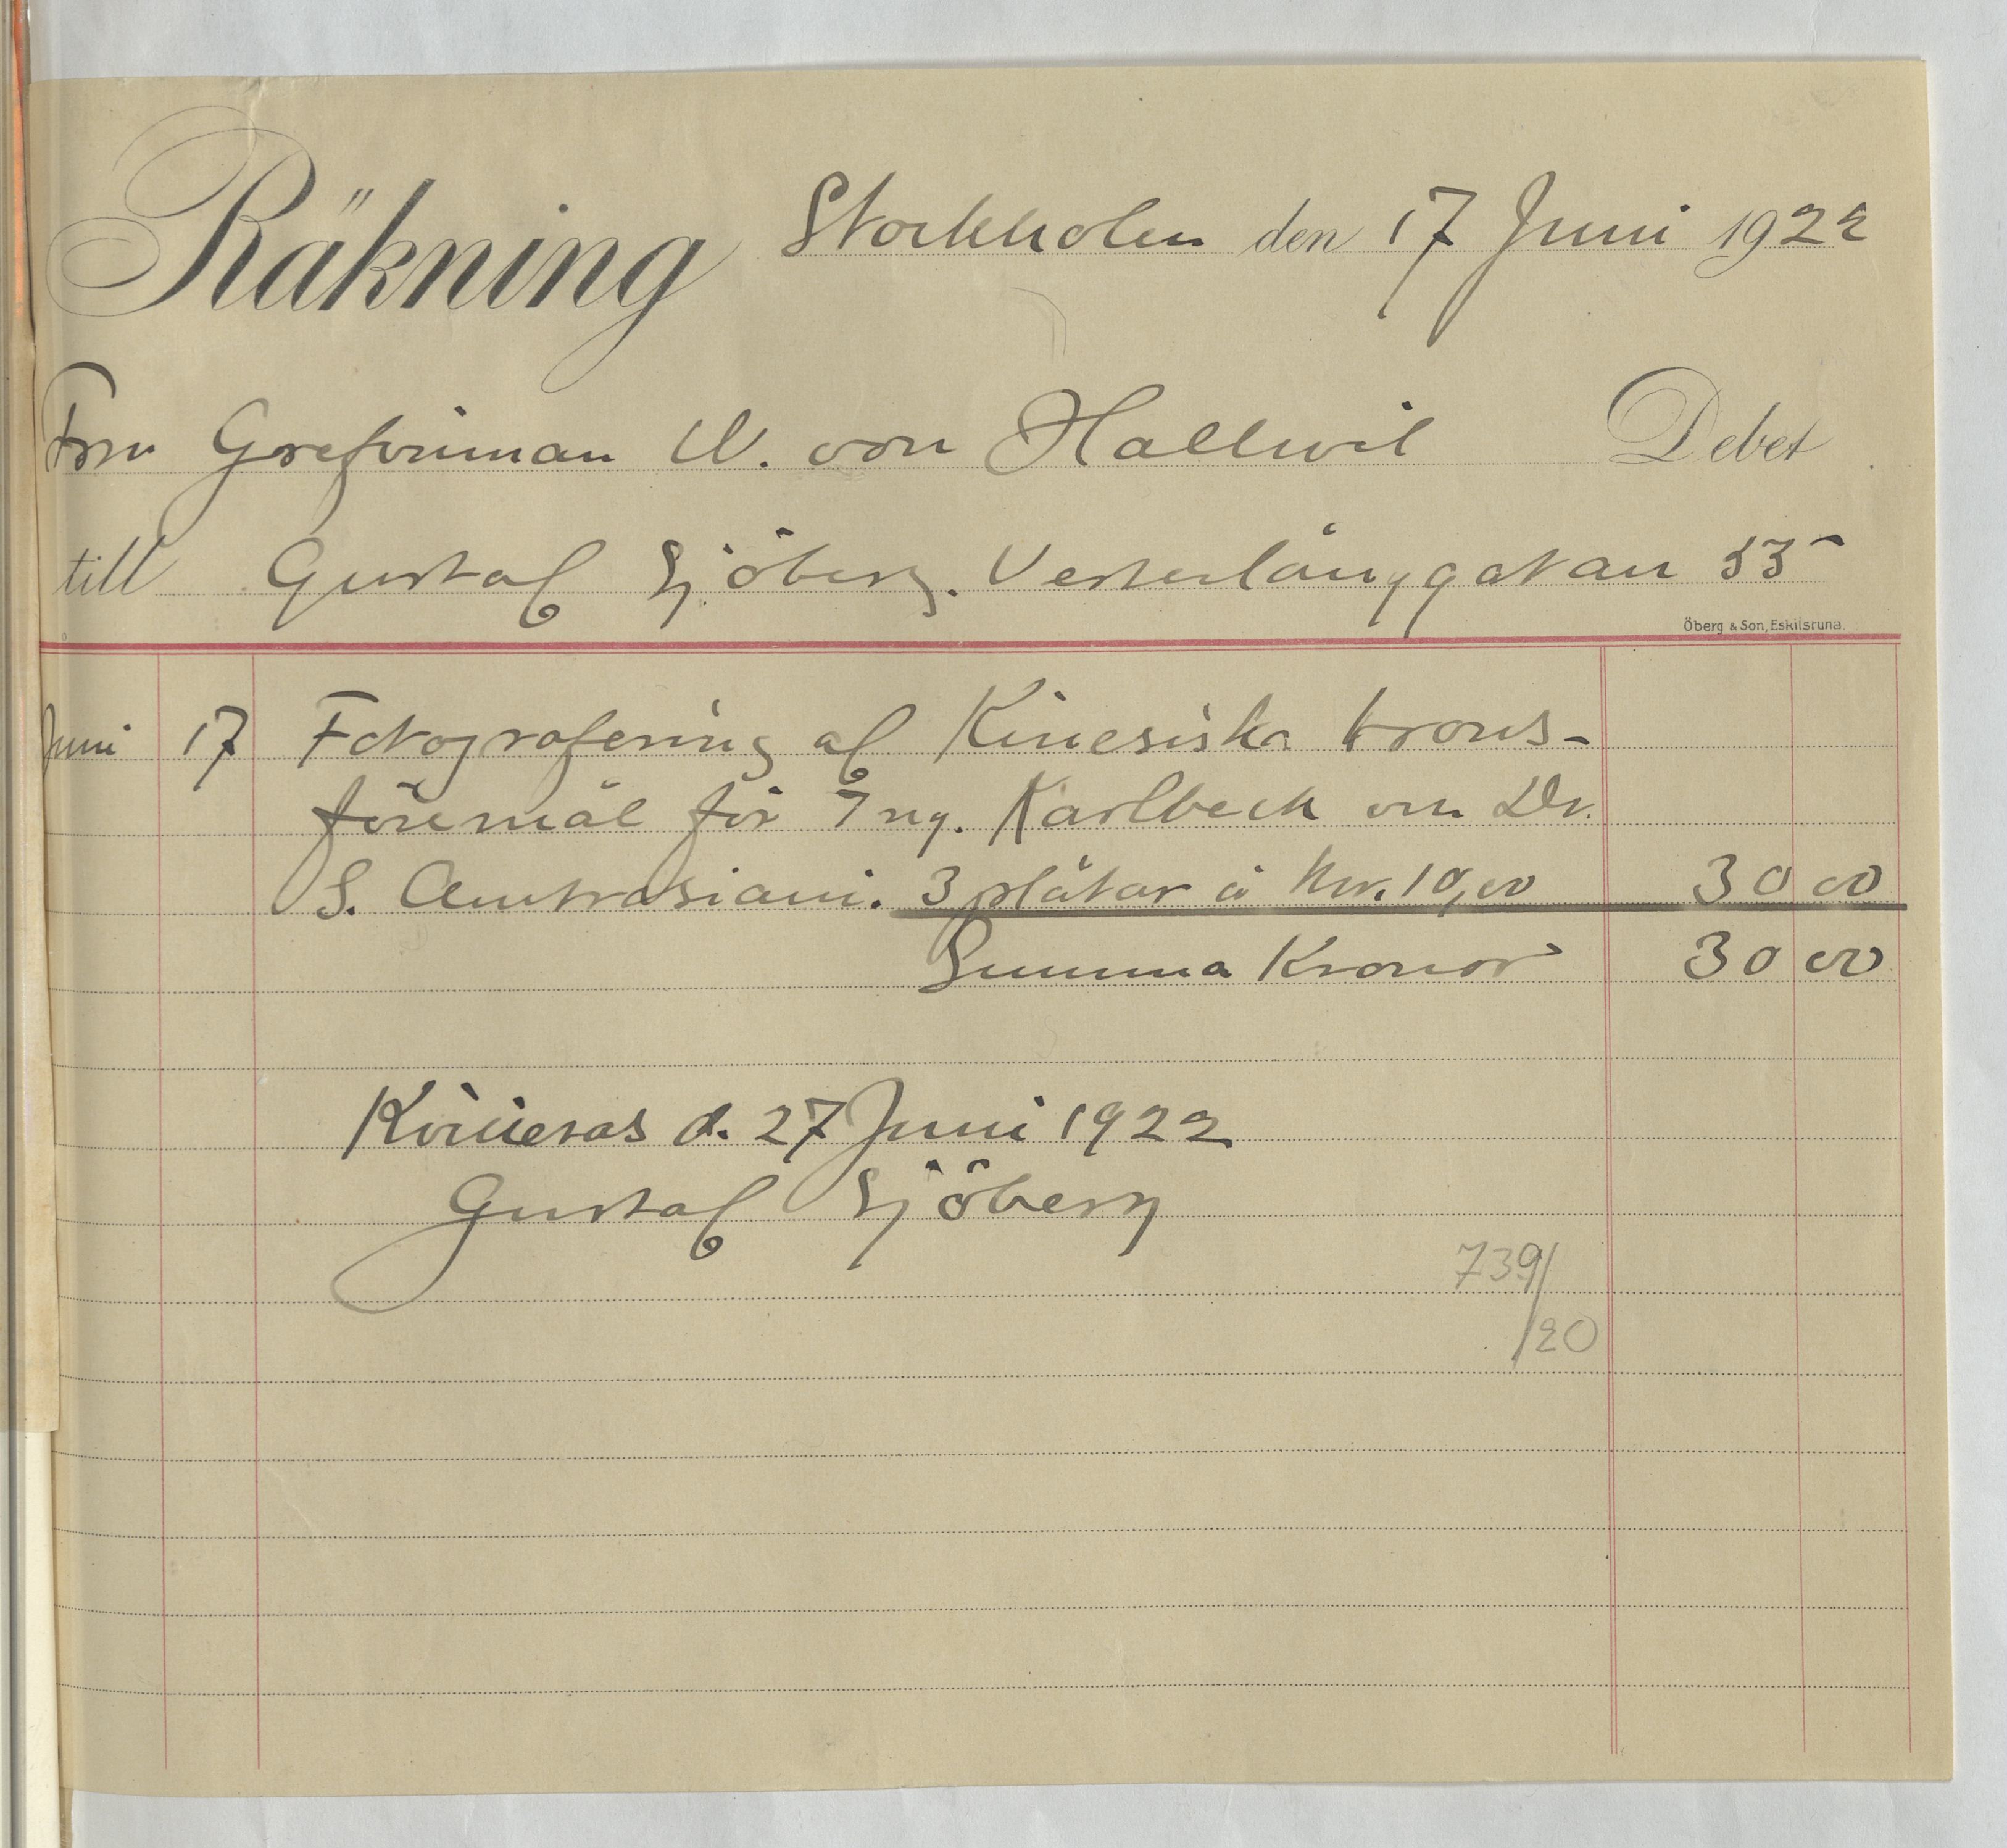 Räkning Stockholm den 17 Juni 1922
Fru Grefvinnan W. von Hallwil Debet
till Gustaf Sjöberg. Vesterlånggatan 55
Öberg & Son, Eskilstuna.
Juni 17 Fotografering af Kinesiska brons-
föremål för Ing. Karlbeck om Dr.
S. 3 plåtar à Kr. 10,00 30 00
Summa Kronor 30 00
Kvitteras d. 27 Juni 1922
Gustaf Sjöberg
739/
/20